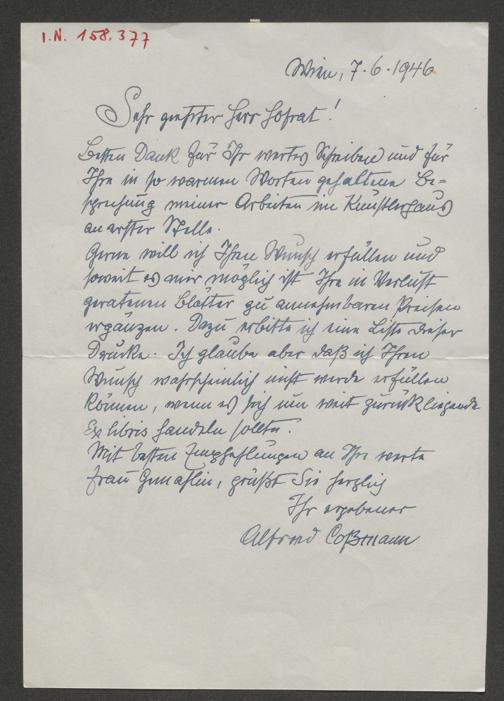 I.N. 158.377
Wien, 7.6.1946
Sehr geehrter Herr Hofrat!
Besten Dank für Ihr wertes Schreiben und für
Ihre in so warmen Worten gehaltene Be-
sprechung meiner Arbeiten im Künstlerhaus
an erster Stelle.
Gerne will ich Ihren Wunsch erfüllen und
soweit es mir möglich ist Ihre in Verlust
geratenen Blätter zu annehmbaren Preisen
ergänzen. Dazu erbitte ich eine Liste dieser
Drucke. Ich glaube aber daß ich Ihren
Wunsch wahrscheinlich nicht werde erfüllen
können, wenn es sich um weit zurückliegende
Ex libris handeln sollte.
Mit besten Empfehlungen an Ihre werte
Frau Gemahlin, grüßt Sie herzlich
Ihr ergebener
Alfred Coßmann